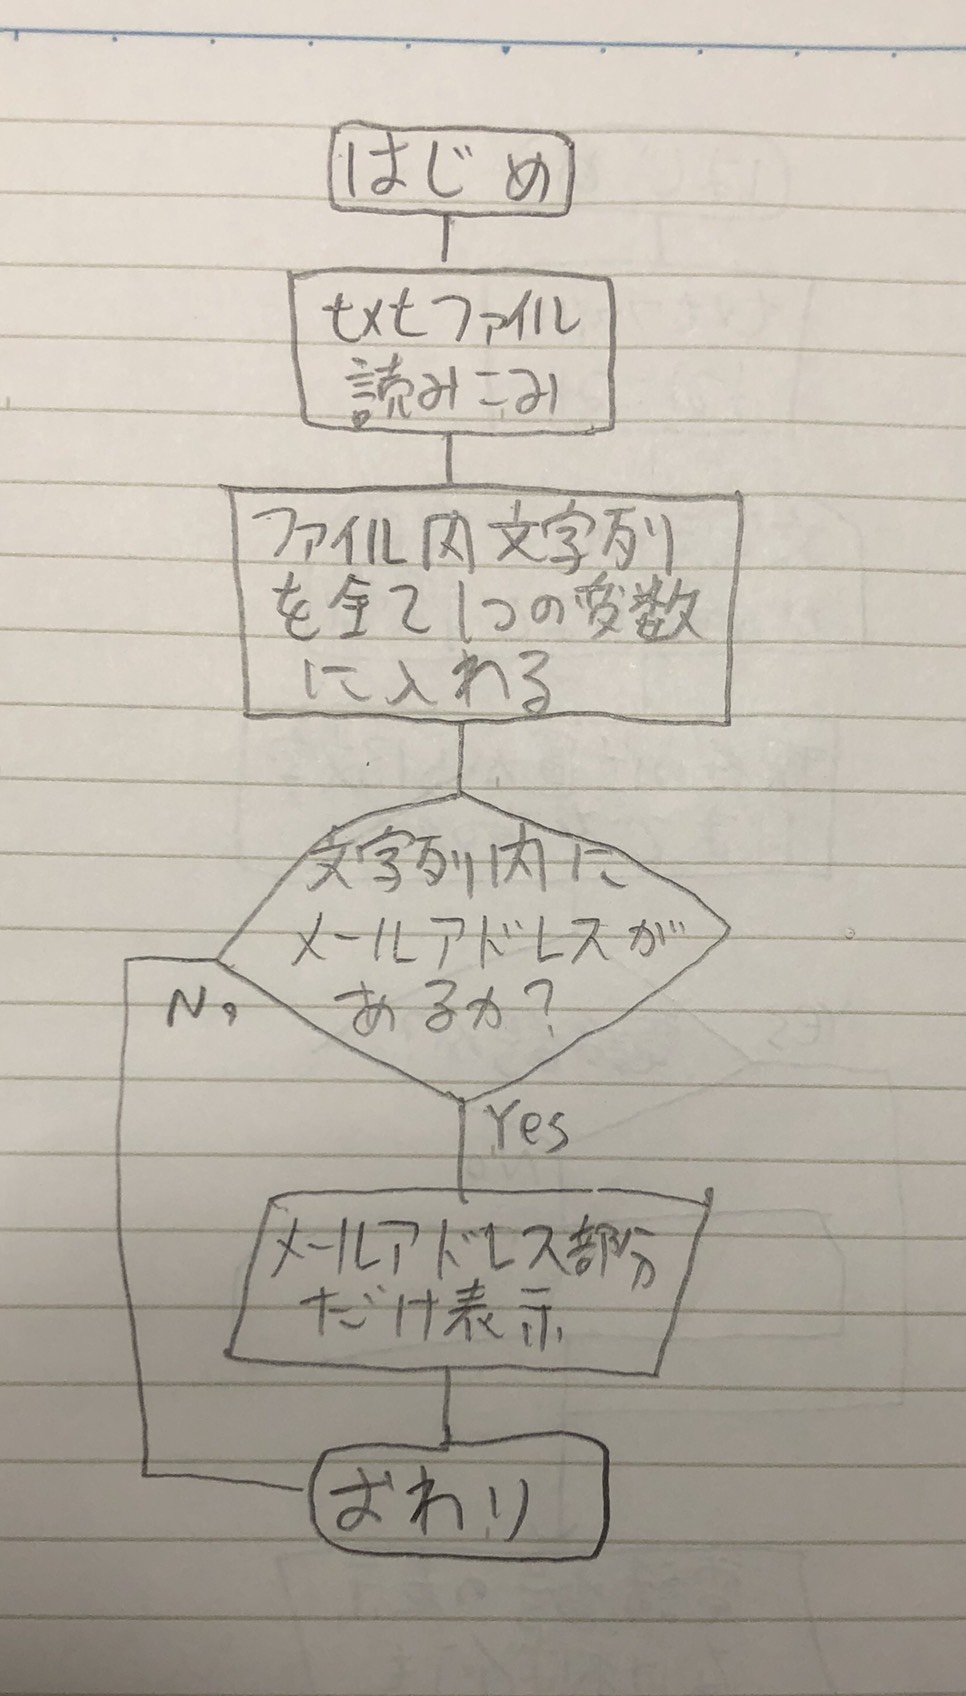 はじめ
txtファイル
読みこみ
ファイル内文字列
を全て1つの変数
に入れる
文字列内に
メールアドレスが
あるか?
No
Yes
メールアドレス部分
だけ表示
おわり